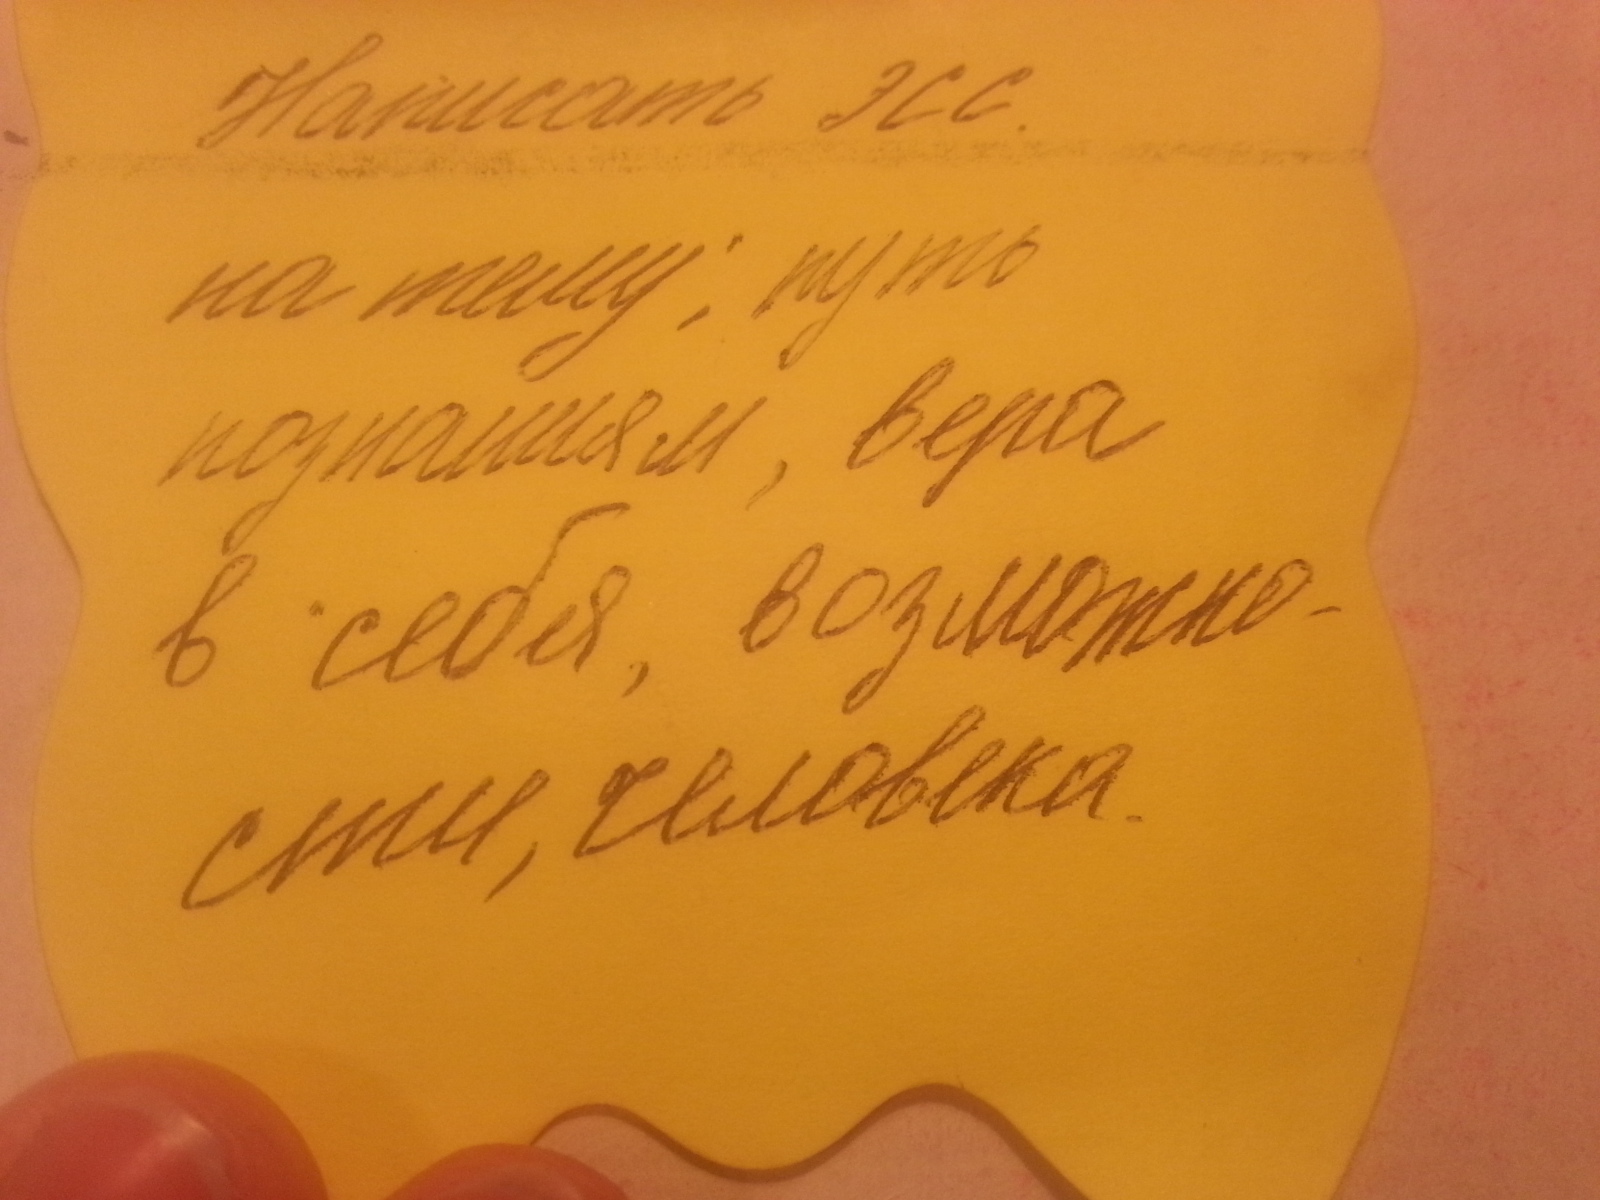 Написать эсс.
на тему; путь
познаниям, вера
в себя, возможно-
сти, человека.